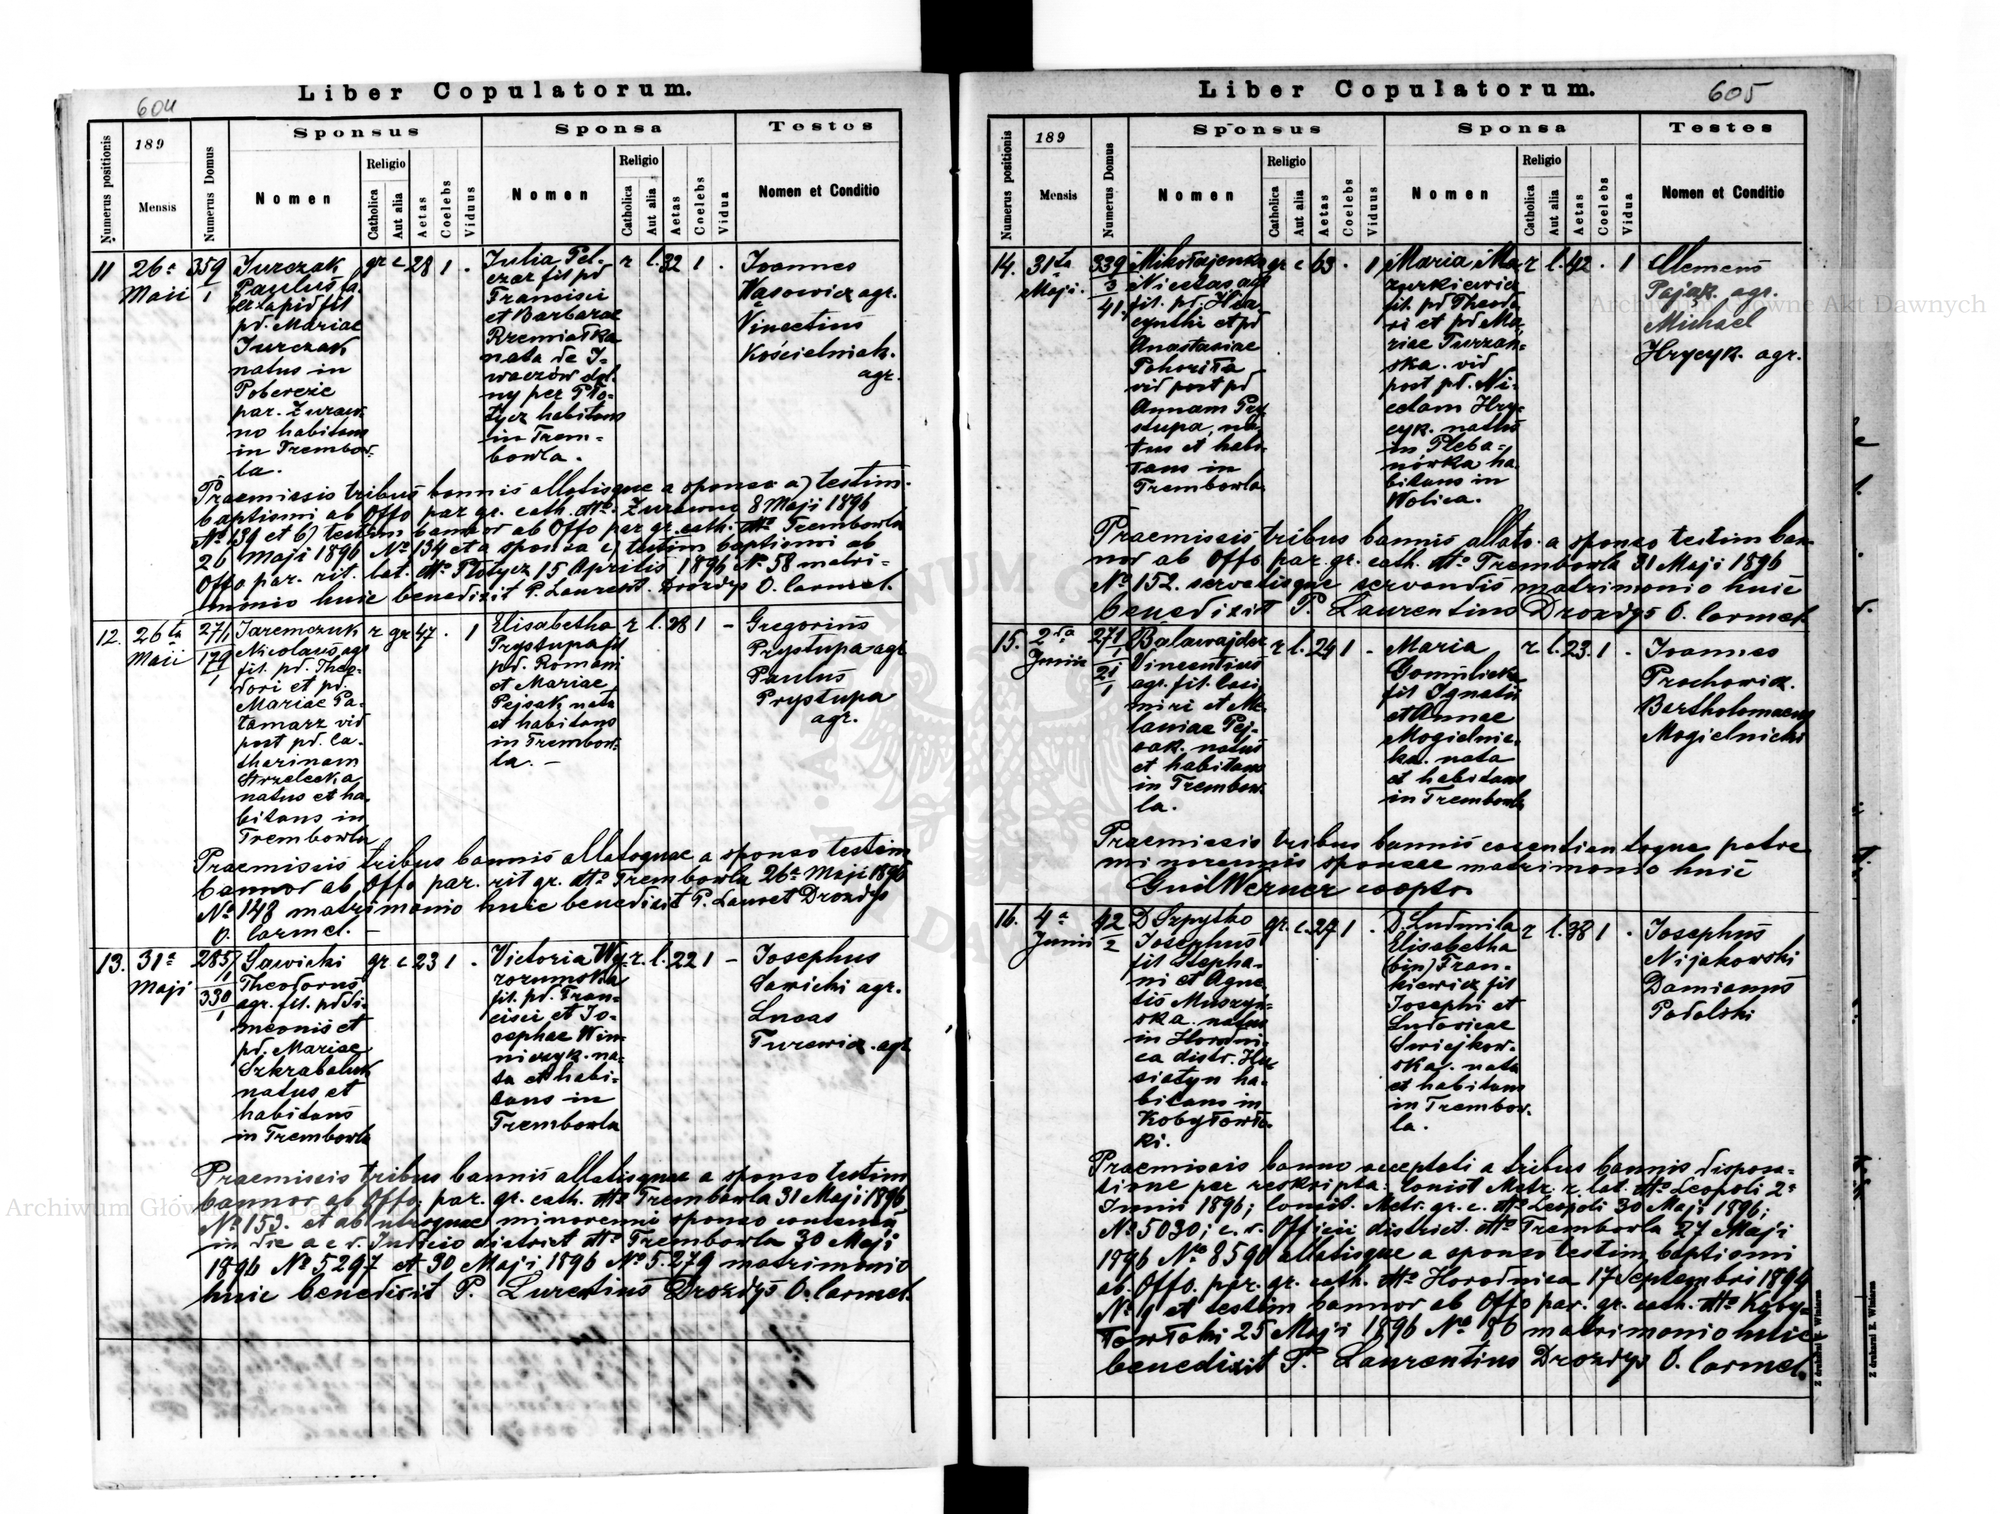 604
Liber Copulatorum.
Numerus positionis
189
Mensis
Numerus Domus
Sponsus
Nomen
Religio
Catholica
Aut alia
Aetas
Coelebs
Viduus
Sponsa
Nomen
Religio
Catholica
Aut alia
Aetas
Coelebs
Vidua
Testes
Nomen et Conditio
11
26a
Maii
359
1
Jurczak
Paulus fa-
ber lapid fil
pd. Mariae
Jurczak
natus in
Pobereże
par. Żuraw-
no habitans
in Trembow-
la.
gr c 28 1 .
Julia Pel-
czar fil pd
Francisci
et Barbarae
Rzemiałka
nata de I-
waczów dol-
ny per Pło-
tycz habitans
in Trem-
bowla.
r l. 32 1 .
Joannes
Wąsowicz agr.
Vincetius
Kościelniak.
agr.
Praemissis tribus bannis allatisque a sponso a) testim.
baptismi ab Offo par gr. cath. Żurawno 8 Maji 1896
No 139 et b) testim bannor ab Offo par gr. cath. Trembowla
26 Maji 1896 No 134 et a sponsa c) testim baptismi ab
Offo par. rit. lat. Płotycz 15 Aprilis 1896 No 58 matri-
monio huic benedixit P. Laurent. Drozdys O. Carmel.
12.
26ta
Maii
271
1
179
1
Jaremczuk
Nicolaus agr
fil. pd. Theo-
dori et pd.
Mariae Pa-
tamarz vid
post pd. Ca-
tharinam
Strzelecka
natus et ha-
bitans in
Trembowla
r gr 47 . 1
Elisabetha
Prystupa fil
pd. Romani
et Mariae
Pejsak nata
et habitans
in Trembow-
la. –
r l. 28 1 –
Gregorius
Prystupa agr
Paulus
Prystupa
agr.
Praemissis tribus bannis allatoque a sponso testim
bannor ab Offo par. rit gr. Trembowla 26a Maji 1896
No 148 matrimonio huic benedixit P. Lauret Drozdys
O. Carmel. –
13.
31a
Maji
285
1
330
1
Sawicki
Theodorus
agr. fil. pd Si-
meonis et
pd. Mariae
Szkrabaluk
natus et
habitans
in Trembowla
gr c 23 1 .
Victoria Wy-
rozumska
fil. pd. Fran-
cisci et Jo-
sephae Win-
niczyk. na-
ta et habi-
tans in
Trembowla
r. l. 22 1 –
Josephus
Sawicki agr.
Lucas
Turewicz. agr
Praemissis tribus bannis allatisque a sponso testim
bannor ab Offo. par. gr. cath. Trembowla 31 Maji 1896
No 153. et ab utroque minorenni sponso consensu
in die a c. d. Judicio district Trembowla 30 Maji
1896 No 5297 et 30 Maji 1896 No 5.279 matrimonio
huic benedixit P. Luretius Drozdys O. Carmel.
605
Liber Copulatorum.
Numerus positionis
189
Mensis
Numerus Domus
Sponsus
Nomen
Religio
Catholica
Aut alia
Aetas
Coelebs
Viduus
Sponsa
Nomen
Religio
Catholica
Aut alia
Aetas
Coelebs
Vidua
Testes
Nomen et Conditio
14.
31ta
Maji.
339
3
41
Mikołajenko
Nicetas agr
fil. pd. Hia-
cynthi et pd
Anastasiae
Pohoriła
vid post pd
Annam Pry-
stupa, na-
tus et habi-
tans in
Trembowla
gr c 63 . 1
Maria Ma-
zurkiewicz
fil. pd Theodo-
ri et pd Ma-
riae Turzań-
ska. vid
post pd. Ni-
cetam Hry-
cyk. natus
in Pleba-
nówka ha-
bitans in
Wolica.
r l. 42 . 1
Clemens
Pająk. agr.
Michael
Hrycyk. agr.
Praemissis tribus bannis allato. a sponso testim ban-
nor ab Offo par. gr. cath. Trembowla 31 Maji 1896
No 152. servatisque servandis matrimonio huic
benedixit P. Laurentius Drozdys O. Carmel
15.
2da
Junii
271
1
21
1
Balawajder
Vincentius
agr. fil. Casi-
miri et Me-
laniae Pej-
sak. natus
et habitans
in Trembow-
la.
r l. 24 1 –
Maria
Gomulicka
fil Ignatii
et Annae
Mogielnic-
ka. nata
et habitans
in Trembowla
r l. 23. 1 .
Joannes
Prochowicz.
Bartholomaeus
Mogielnicki
Praemissis tribus bannis consentientoque patre
minorennis sponsae matrimonio huic
Guil Werner coopto.
16.
4a
Junii
92
2
D Szpytko
Josephus
fil Stepha-
ni et Agne-
tis Muszyń-
ska. natus
in Horodni-
ca distr. Hu-
siatyn ha-
bitans in
Kobyłowło-
ki.
gr. c. 27 1 .
D. Ludmila
Elisabetha
(bin) Fran-
kiewicz fil
Josephi et
Ludovicae
Swiejkow-
ska. nata
et habitans
in Trembow-
la.
r l. 38 1 .
Josephus
Nijakowski
Damianus
Podolski
Praemissis banno accepta a tribus bannis dispensa-
tione per reskripta: Consist Metr. r. lat. Leopoli 2a
Junii 1896; Consist. Metr. gr. c. Leopoli 30 Maji 1896;
No 5030; c. r. Officii district. Trembowla 27 Maji
1896 No 8590 allatisque a sponso testim, baptismi
ab. Offo. par. gr. cath. Horodnica 17 Septembri 1894
No 9 et testim bannor ab Offo par. gr. cath. Koby-
łowłoki 25 Maji 1896 No 86 matrimonio huic
benedixit P. Laurentius Drozdys O. Carmel.
Z drukarni E. Winiarza
Z drukarni E. Winiarza
Archiwum Główne Akt Dawnych
Archiwum Główne Akt Dawnych